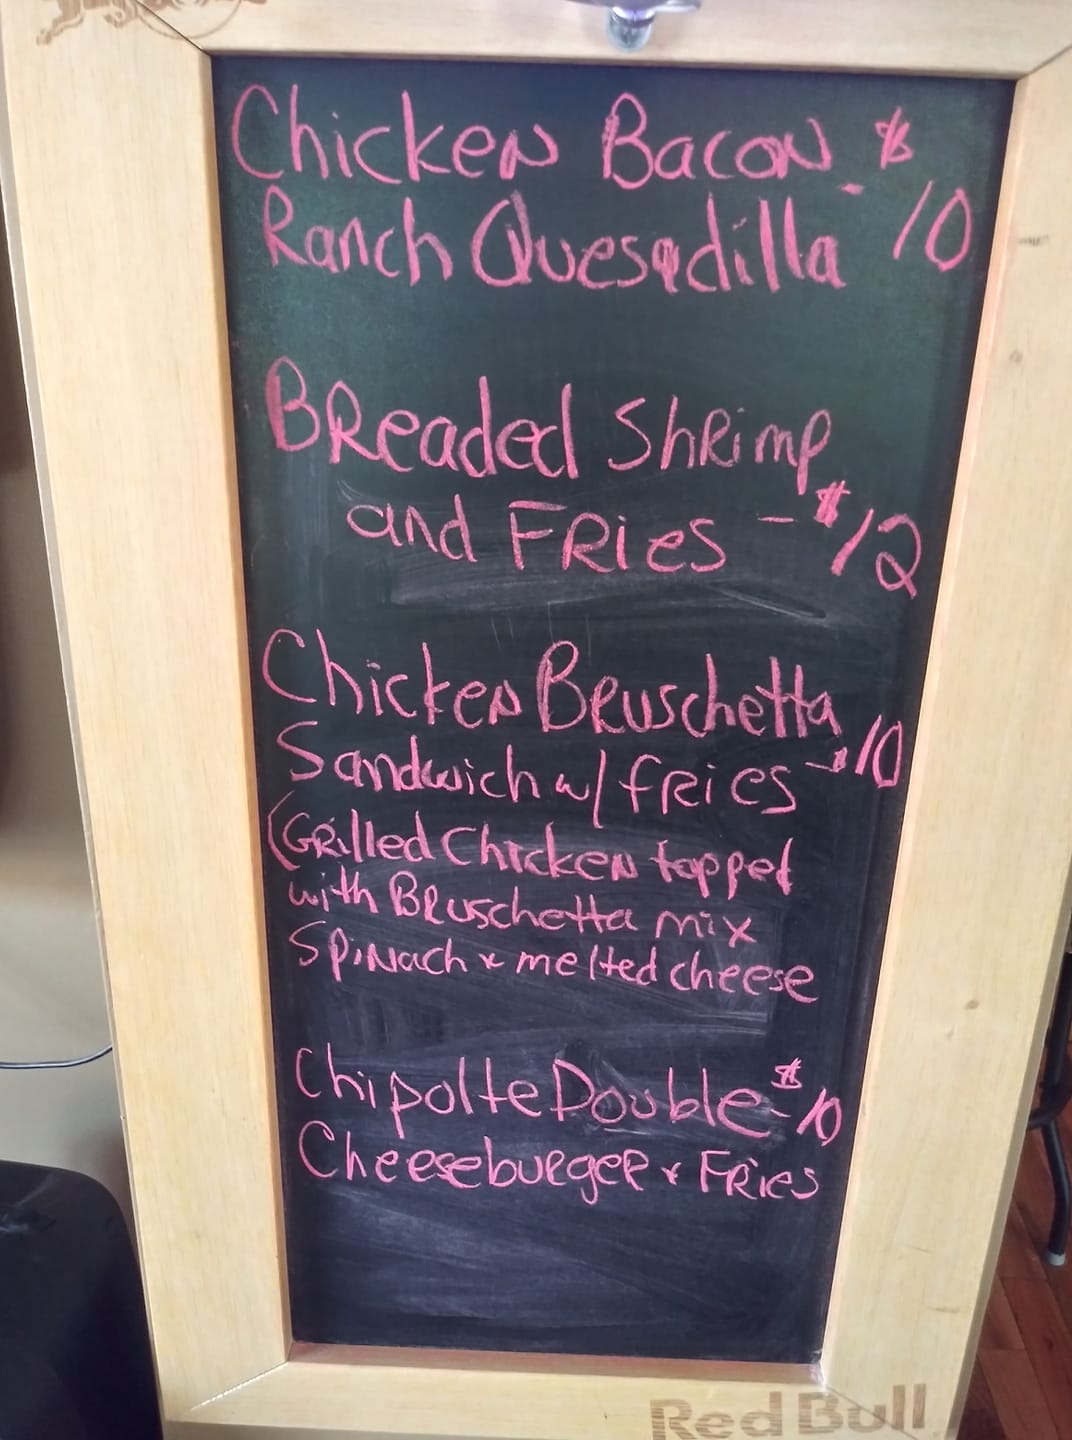 Chicken Bacon $
Ranch Quesadilla - 10
Breaded Shrimp
and Fries - $12
Chicken Bruschetta
Sandwich w/ fries - $10
(Grilled Chicken topped
with Bruschetta mix
Spinach & melted cheese
Chipolte Double - $10
Cheeseburger & Fries
Red Bull